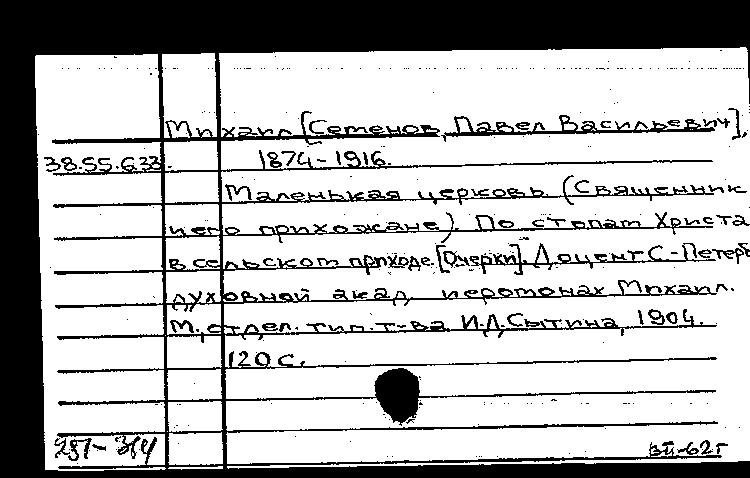 Михаил [Семенов, Павел Васильевич],
38.55.633. 1874-1916.
Маленькая церковь (Священник
и его прихожане). По стопам Христа
в сельском приходе. [Очерки]. Доцент С.-Петерб
духовной акад. иеромонах Михаил.
М., отдел. тип. т-ва И.Д.Сытина, 1904.
120 с.
вп-62г